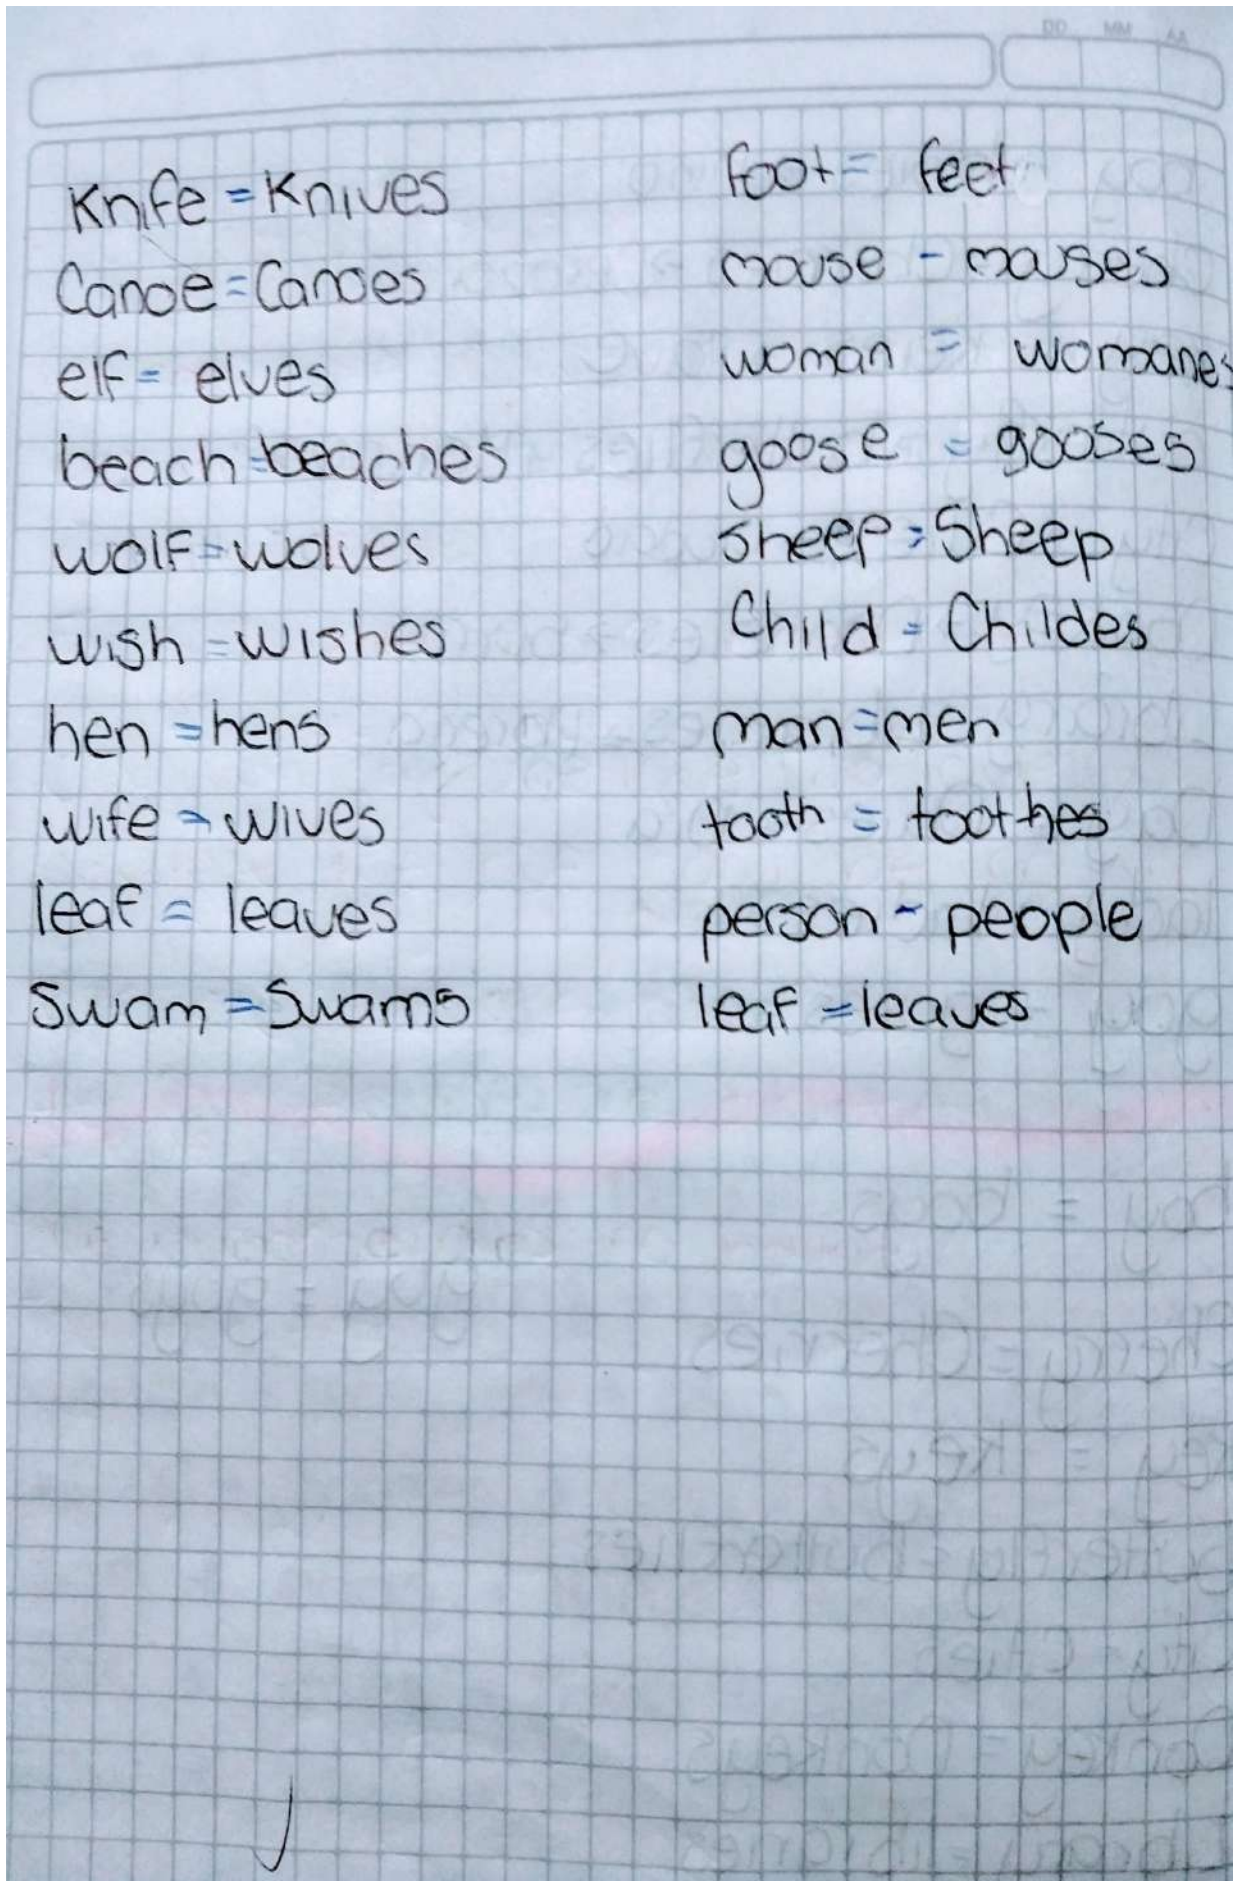 DD MM AA
Knife = Knives
Canoe = Canoes
elf = elves
beach = beaches
wolf = wolves
wish = wishes
hen = hens
wife = wives
leaf = leaves
Swam = Swams
foot = feet
mouse - mouses
woman = womanes
goose = gooses
sheep = Sheep
Child = Childes
man = men
tooth = toothes
person - people
leaf = leaves